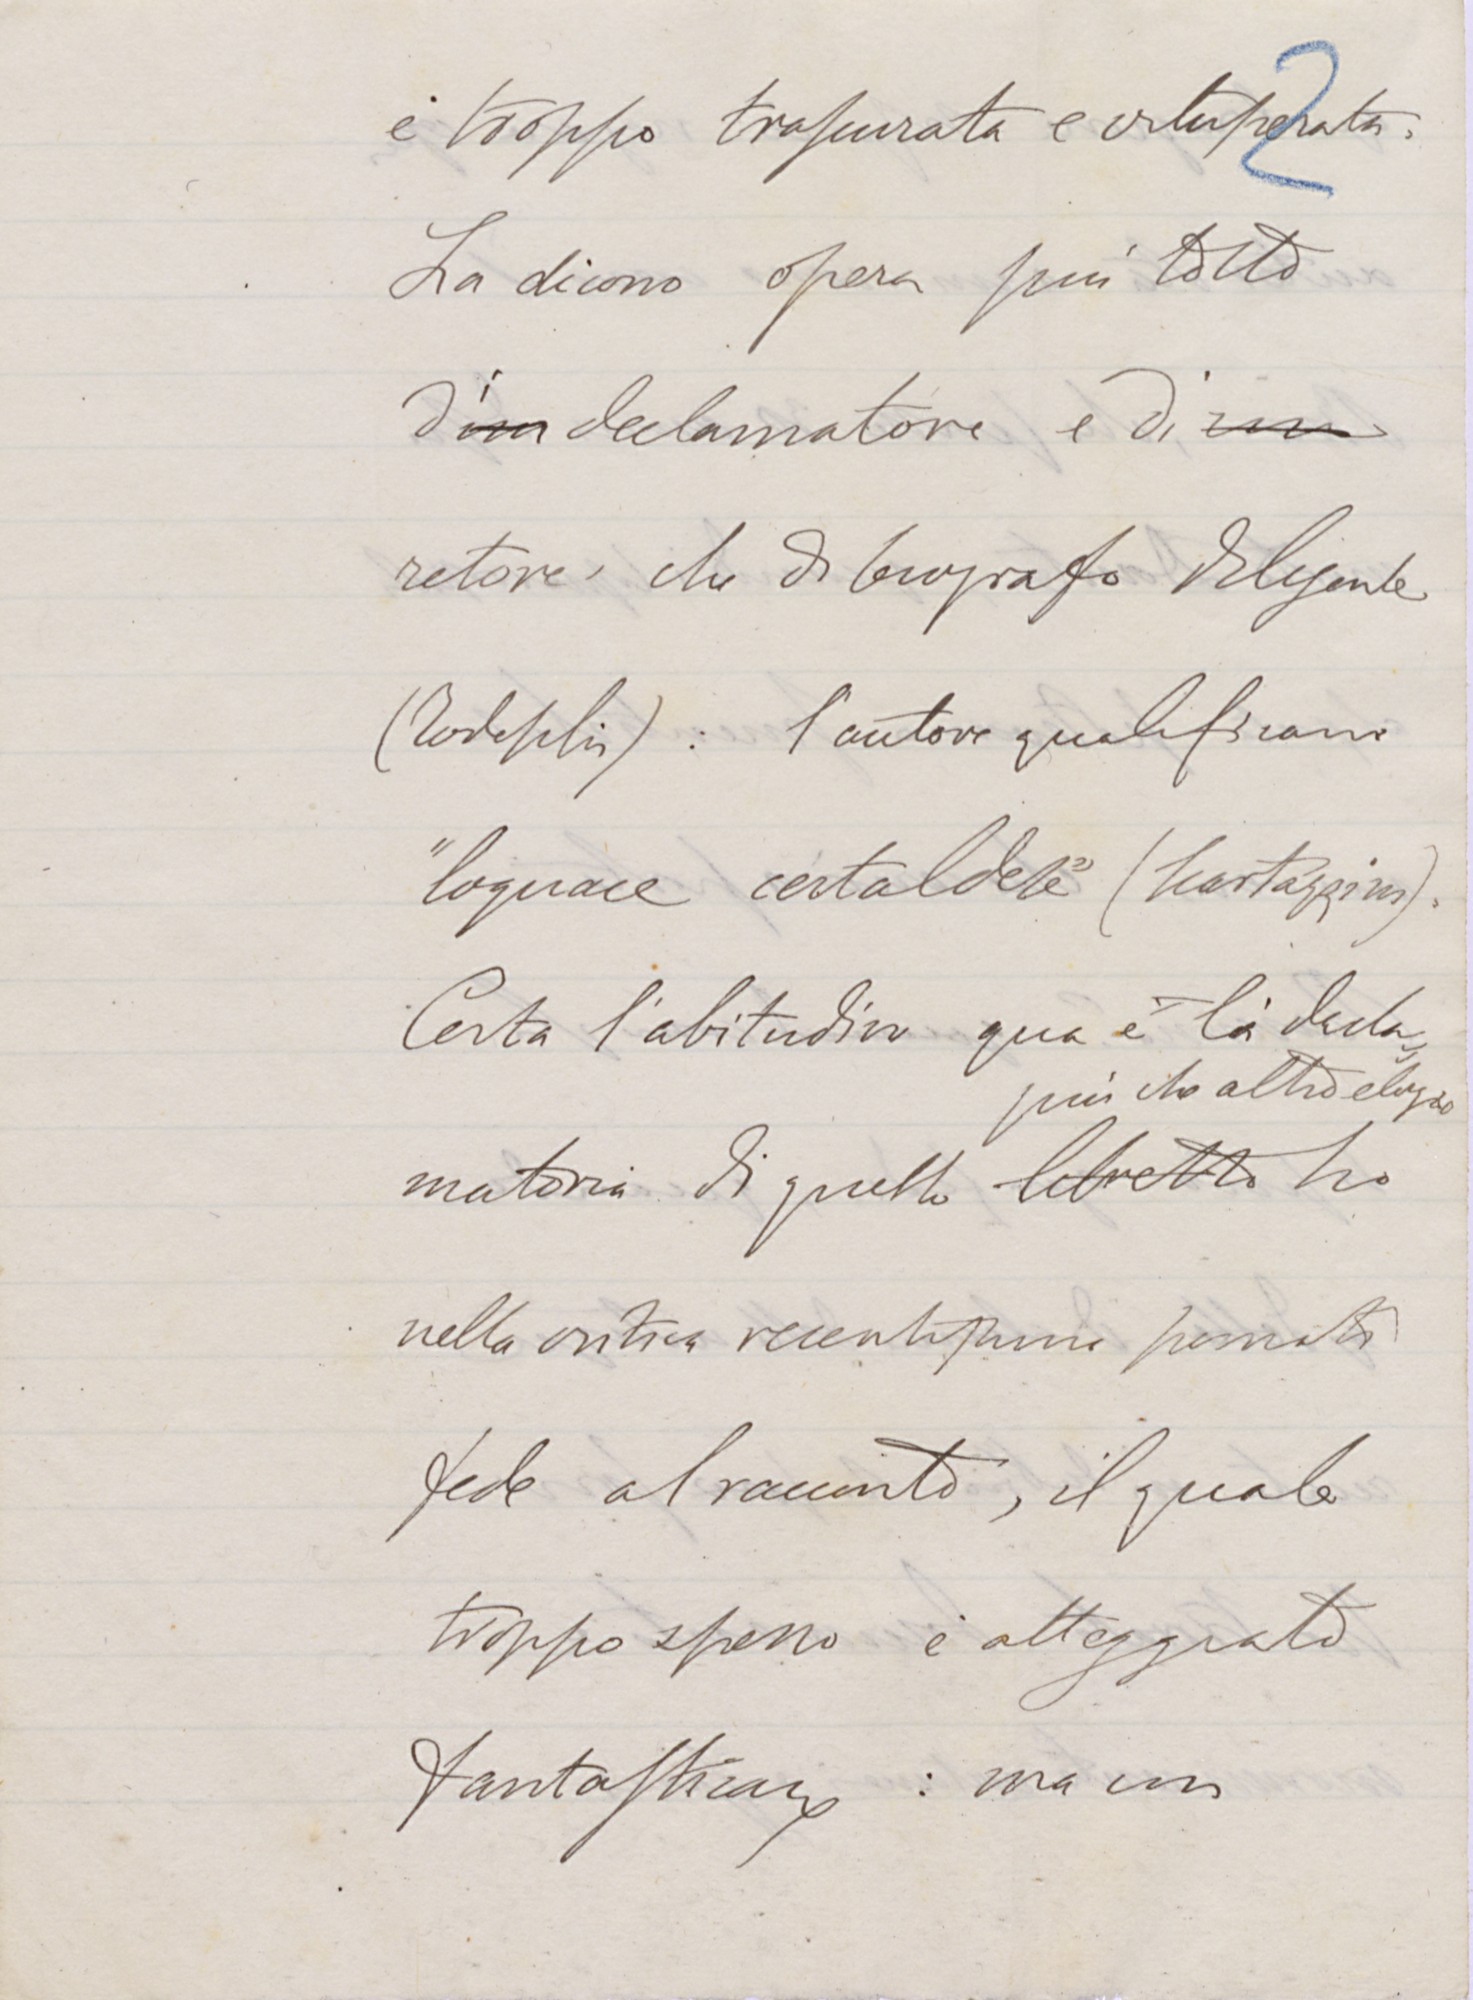 2
è troppo trascurata e vituperata.
La dicono opera più tosto
di un declamatore e di un
retore, che di biografo diligente
(Todeschini): l'autore qualificano
"loquace certaldese" (Scartazzini).
Certa l'abitudine qua e là decla-
più che altro elogio
matoria di quello libretto ha
nella critica recentissima scemato
fede al racconto, il quale
troppo spesso è atteggiato
: ma un